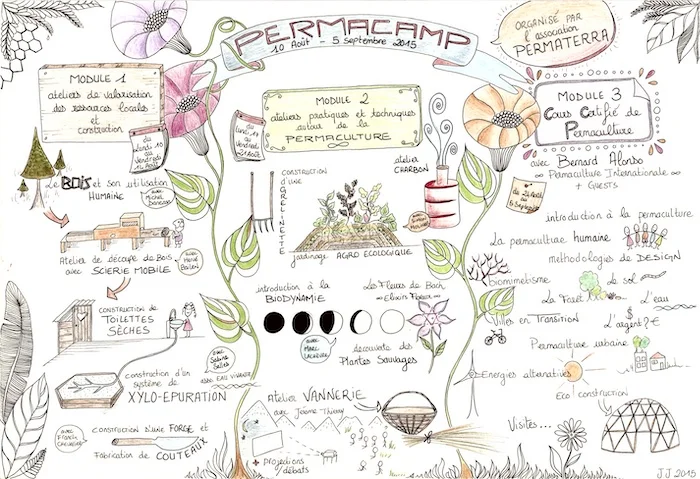 PERMACAMP
10 Août - 5 Septembre 2015
ORGANISÉ PAR
l'association
PERMATERRA
MODULE 1
ateliers de valorisation
des ressources locales
et
construction
du
Lundi 10
au
Vendredi
14 Août
Le BOIS et son utilisation
HUMAINE
avec
Michel
Atelier de découpe de Bois
avec SCIERIE MOBILE
avec
Hervé
CONSTRUCTION DE
TOILETTES
SÈCHES
construction d'un
système de
XYLO-EPURATION
avec
ASSO EAU VIVANTE
CONSTRUCTION D'UNE FORGE et
Fabrication de COUTEAUX
avec
Franck
MODULE 2
ateliers pratiques et techniques
autour de la
PERMACULTURE
Lundi 10
au
Vendredi
21 Août
CONSTRUCTION
D'UNE
GRELINETTE
atelier
CHARBON
avec
jardinage AGRO ECOLOGIQUE
introduction à la
BIODYNAMIE
Les Fleurs de Bach
Elixirs Floraux
avec
MARC
découverte des
Plantes Sauvages
Atelier VANNERIE
avec Jérôme Thierry
+ projections
/débats
MODULE 3
Cours Certifié de
Permaculture
avec Bernard Alonso
Permaculture Internationale
+ GUESTS
du 24 Août
au
5 Septembre
introduction à la permaculture
La permaculture humaine
méthodologies de DESIGN
biomimétisme
Le sol
La Forêt
L'eau
Villes en TRANSITION
L'argent? €
$
Permaculture urbaine
Energies alternatives
Eco construction
Visites...
JJ 2015